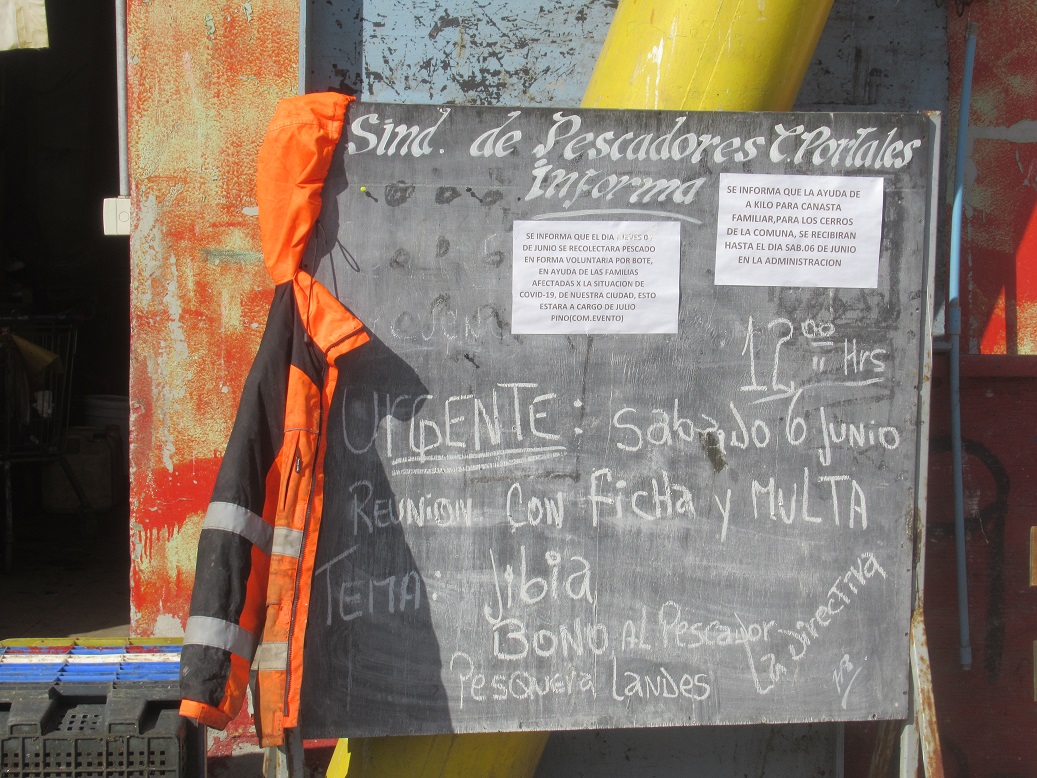 Sind. de Pescadores C. Portales
Informa
SE INFORMA QUE LA AYUDA DE
A KILO PARA CANASTA
FAMILIAR,PARA LOS CERROS
DE LA COMUNA, SE RECIBIRAN
HASTA EL DIA SAB.06 DE JUNIO
EN LA ADMINISTRACION
SE INFORMA QUE EL DIA JUEVES
DE JUNIO SE RECOLECTARA PESCADO
EN FORMA VOLUNTARIA POR BOTE,
EN AYUDA DE LAS FAMILIAS
AFECTADAS X LA SITUACION DE
COVID-19, DE NUESTRA CIUDAD, ESTO
ESTARA A CARGO DE JULIO
PINO(COM.EVENTO)
12 00 Hrs
URGENTE: Sabado 6 Junio
REUNION CON Ficha y MULTA
TEMA: Jibia
BONO AL Pescador
Pesquera Landes
La Directiva